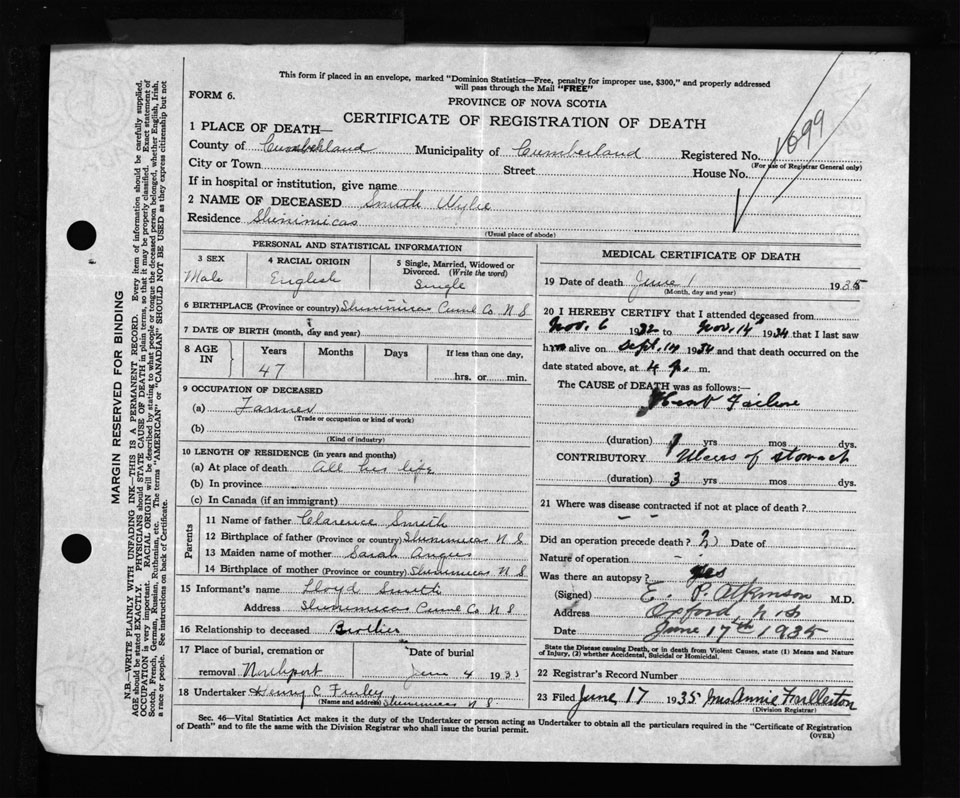 This form if placed in an envelope, marked "Dominion Statistics—Free, penalty for improper use, $300," and properly addressed
will pass through the Mail "FREE"
FORM 6.
PROVINCE OF NOVA SCOTIA
CERTIFICATE OF REGISTRATION OF DEATH
1699
1 PLACE OF DEATH—
County of Cumberland Municipality of Cumberland Registered No.
(For use of Registrar General only)
City or Town Street House No.
If in hospital or institution, give name
2 NAME OF DECEASED Smith Wylie
Residence Shinimicas
(Usual place of abode)
PERSONAL AND STATISTICAL INFORMATION
3 SEX 4 RACIAL ORIGIN 5 Single, Married, Widowed or
Divorced. (Write the word)
Male English Single
6 BIRTHPLACE (Province or country) Shinimicas Cum Co. N S
7 DATE OF BIRTH (month, day and year)
8 AGE IN Years Months Days If less than one day,
47 hrs. or min.
9 OCCUPATION OF DECEASED
(a) Farmer
(Trade or occupation or kind of work)
(b)
(Kind of industry)
10 LENGTH OF RESIDENCE (in years and months)
(a) At place of death All his life
(b) In province
(c) In Canada (if an immigrant)
Parents
11 Name of father Clarence Smith
12 Birthplace of father (Province or country) Shinimicas N S
13 Maiden name of mother Sarah Angus
14 Birthplace of mother (Province or country) Shinimicas N S
15 Informant's name Lloyd Smith
Address Shinimicas Cum Co N S
16 Relationship to deceased Brother
17 Place of burial, cremation or Date of burial
removal Northport June 4 1935
18 Undertaker Henry C Finley
(Name and address) Shinimicas N S.
MEDICAL CERTIFICATE OF DEATH
19 Date of death June 1 1935
(Month, day and year)
20 I HEREBY CERTIFY that I attended deceased from
Nov. 6 1932 to Nov. 14th 1934 that I last saw
him alive on Sept. 14 1934 and that death occurred on the
date stated above, at 4 P. m.
The CAUSE of DEATH was as follows:—
Heart Failure
(duration) 1 yrs mos dys.
CONTRIBUTORY Ulcers of stomach
(duration) 3 yrs mos dys.
21 Where was disease contracted if not at place of death?
Did an operation precede death? Date of
Nature of operation –
Was there an autopsy? yes
(Signed) E. P. Atkinson M.D.
Address Oxford N.S
Date June 17th 1935
State the Disease causing Death, or in death from Violent Causes, state (1) Means and Nature
of Injury, (2) whether Accidental, Suicidal or Homicidal.
22 Registrar's Record Number
23 Filed June 17 1935 Mrs Annie
(Division Registrar)
Sec. 46—Vital Statistics Act makes it the duty of the Undertaker or person acting as Undertaker to obtain all the particulars required in the "Certificate of Registration
of Death" and to file the same with the Division Registrar who shall issue the burial permit.
(OVER)
MARGIN RESERVED FOR BINDING
N.B.—WRITE PLAINLY WITH UNFADING INK—THIS IS A PERMANENT RECORD. Every item of information should be carefully supplied.
AGE should be stated EXACTLY. PHYSICIANS should STATE CAUSE OF DEATH in plain terms, so that it may be properly classified. Exact statement of
OCCUPATION is very important. RACIAL ORIGIN will be described by stating to what people or tongue the deceased person belonged, whether English, Irish,
Scotch, French, German, Russian, Ruthenian, etc. The terms "AMERICAN" or "CANADIAN" SHOULD NOT BE USED as they express citizenship but not
a race or people. See instructions on back of Certificate.